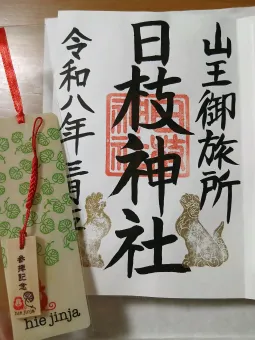 山王御旅所
日枝神社
令和八年三月
参拝記念
hie jinja
hie jinja